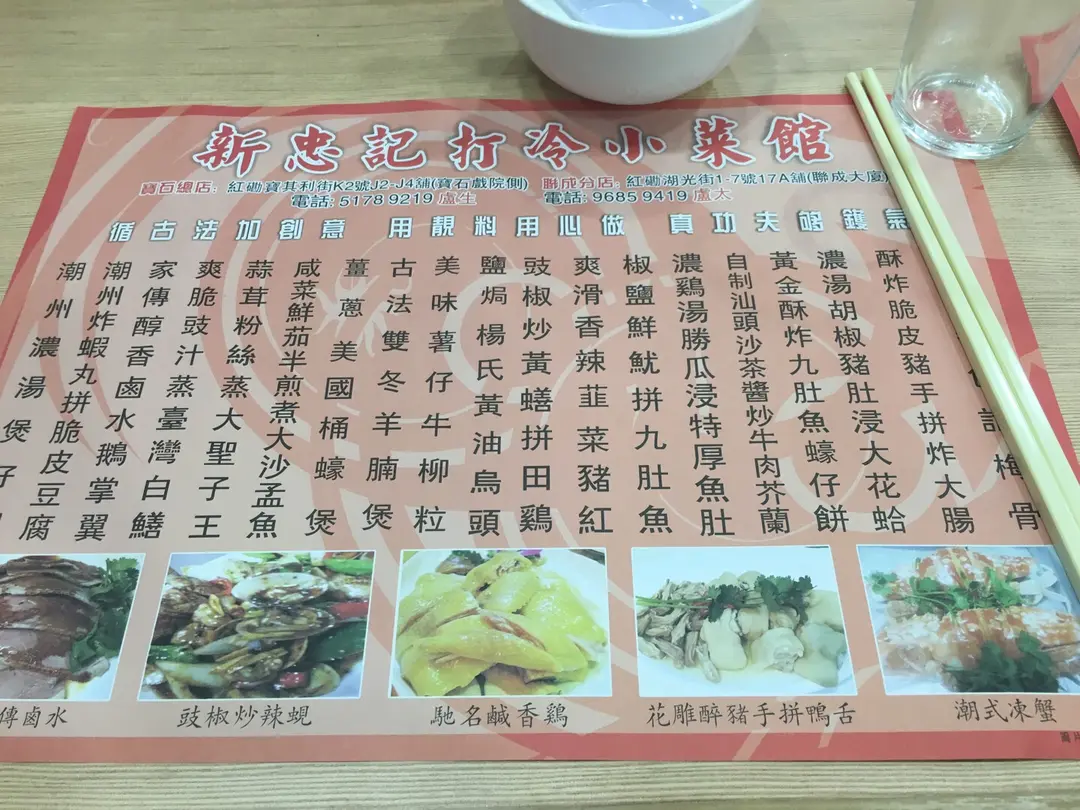 新忠記打冷小菜館
寶石總店：紅磡寶其利街K2號J2-J4舖(寶石戲院側) 聯成分店：紅磡湖光街1-7號17A舖(聯成大廈)
電話: 5178 9219 盧生 電話: 9685 9419 盧太
循古法加創意 用靚料用心做 真功夫夠鑊氣
記梅骨
酥炸脆皮豬手拼炸大腸
濃湯胡椒豬肚浸大花蛤
黃金酥炸九肚魚蠔仔餅
自制汕頭沙茶醬炒牛肉芥蘭
濃鷄湯勝瓜浸特厚魚肚
椒鹽鮮魷拼九肚魚
爽滑香辣韮菜豬紅
豉椒炒黃鱔拼田鷄
鹽焗楊氏黃油烏頭
美味薯仔牛柳粒
古法雙冬羊腩煲
薑蔥美國桶蠔煲
咸菜鮮茄半煎煮大沙孟魚
蒜茸粉絲蒸大聖子王
爽脆豉汁蒸臺灣白鱔
家傳醇香鹵水鵝掌翼
潮州炸蝦丸拼脆皮豆腐
潮州濃湯煲仔
傳鹵水
豉椒炒辣蜆
馳名鹹香鷄
花雕醉豬手拼鴨舌
潮式凍蟹